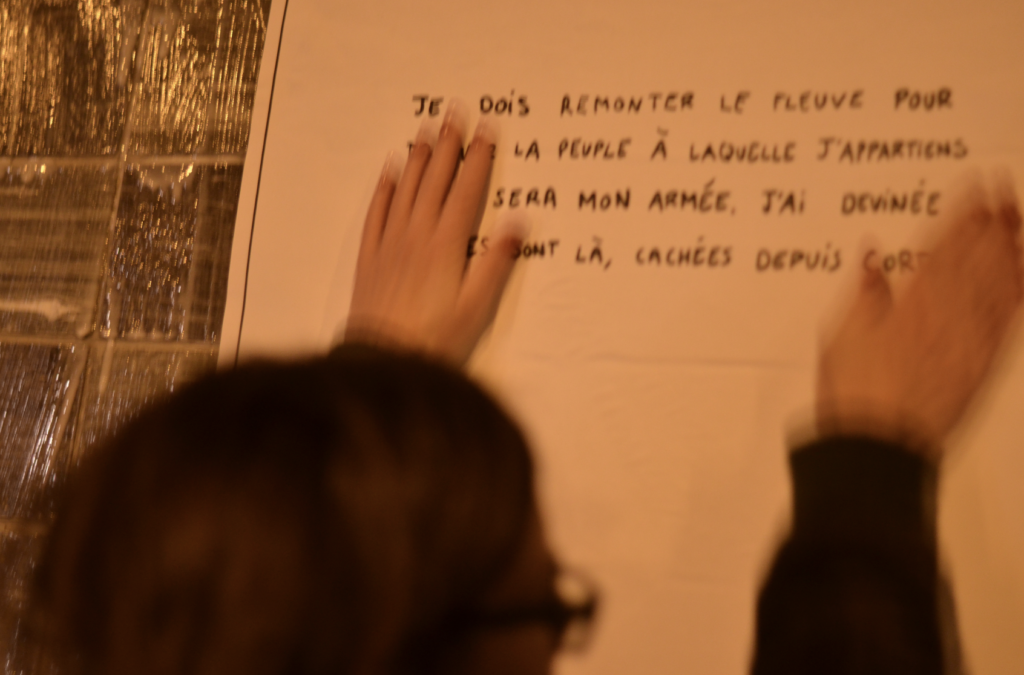 JE DOIS REMONTER LE FLEUVE POUR
LA PEUPLE À LAQUELLE J'APPARTIENS
SERA MON ARMÉE. J'AI DEVINÉE
SONT LÀ, CACHÉES DEPUIS